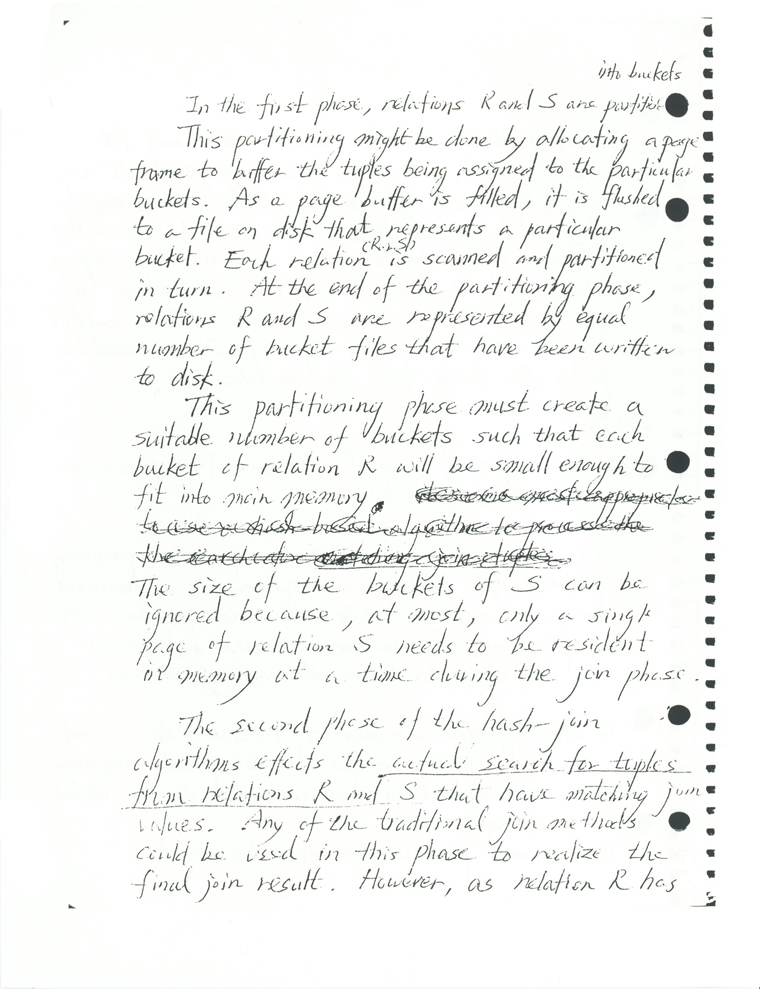 into buckets
In the first phase, relations R and S are partition
This partitioning might be done by allocating a page
frame to buffer the tuples being assigned to the particular
buckets. As a page buffer is filled, it is flushed
to a file on disk that represents a particular
(R & S)
bucket. Each relation is scanned and partitioned
in turn. At the end of the partitioning phase,
relations R and S are represented by equal
number of bucket files that have been written
to disk.
This partitioning phase must create a
suitable number of buckets such that each
bucket of relation R will be small enough to
fit into main memory.
to use a hash-based algorithm to process the
the search
The size of the buckets of S can be
ignored because, at most, only a single
page of relation S needs to be resident
in memory at a time during the join phase.
The second phase of the hash-join
algorithms effects the actual search for tuples
from relations R and S that have matching join
values. Any of the traditional join methods
could be used in this phase to realize the
final join result. However, as relation R has